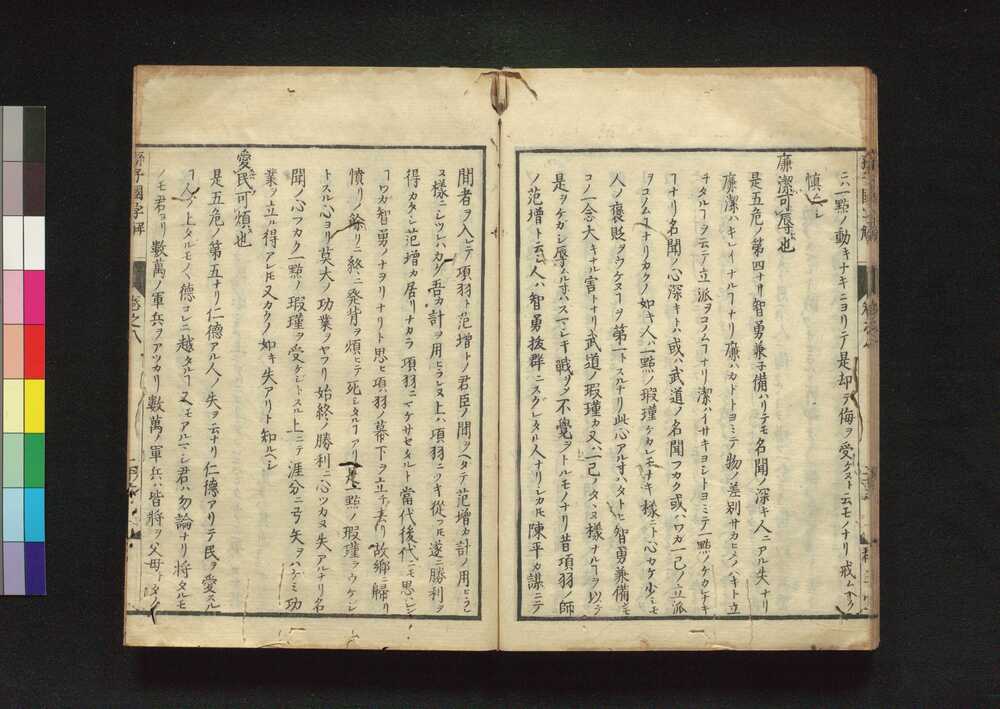 ニハ一點ノ動キナキニヨリテ是却テ侮ヲ愛グズト云モノナリ戒ムベク
慎ムベシ
廉潔可辱也
是五危ノ第四ナリ智勇兼子備ハリテモ名聞ノ深キ人ニアル失ナリ
廉潔ハキレイナルヿナリ廉ハカドトヨミテ物ノ差別サカヒメノヘキト立
チタルヿヲ云テ立派ヲコノムヿナリ潔ハイサキヨシトヨミテ一點ノケカレナキ
ヿナリ名聞ノ心深キトハ或ハ武道ノ名聞フカク或ハワカ一己ノ立派
ヲコノムヿナリカクノ如キ人ハ一點ノ瑕瑾ケカレモナキ様ニト心カケ少ニモ
人ノ褒貶ヲウケヌヿヲ第一トスルナリ此心アル寸ハタトヒ智勇兼備ニモ
コノ一念大キナル害トナリ武道ノ瑕瑾カ又ハ一己ノタヽヌ様ナルヿヲ以テ
是ヲケガシ辱ムル寸ハスマジキ戰ヲシ不覺ヲトルモノナリ昔項羽ノ師
ノ范増ト云シ人ハ智勇拔群ニスグレタル人ナリシカ𪜈陳平カ謀ニテ
間者ヲ入レテ項羽ト范増トノ君臣ノ間ヲヘタテ范増カ計ノ用ヒラレ
ヌ様ニシツレハカク吾カ計ヲ用ヒラレヌ上ハ項羽ニツキ從フ𪜈遂ニ勝利ヲ
得カタシ范増カ居リナカラ項羽ニマケサセタルト當代後代ニモ思ハレン
ヿワカ智勇ノナヲリナリト思ヒ項羽ノ幕下ヲ立チ去リ故郷ニ歸リ
憤リノ餘リニ終ニ発背ヲ煩ヒテ死シタルヿアリ是一點ノ瑕瑾ヲウケジ
トスル心ヨリ莫大ノ功業ノヤフリ始終ノ勝利ニ心ツカヌ失アルナリ名
聞ノ心フカク一點ノ瑕瑾ヲ受ケジトスル上ニテ涯分ニ弓矢ヲハゲミ功
業ヲ立ル得アレ𪜈又カクノ如キ失アリト知ルヘシ
愛民可煩也
是五危ノ第五ナリ仁德アル人ノ失ヲ云ナリ仁德アリテ民ヲ愛スル
ヿ人ノ上タルモノヽ德コレニ越タルヿ又モアルマシ君ハ勿論ナリ將タルモ
ノモ君ヨリ數萬ノ軍兵ヲアツカリ數萬ノ軍兵ハ皆將ヲ父母トタノ